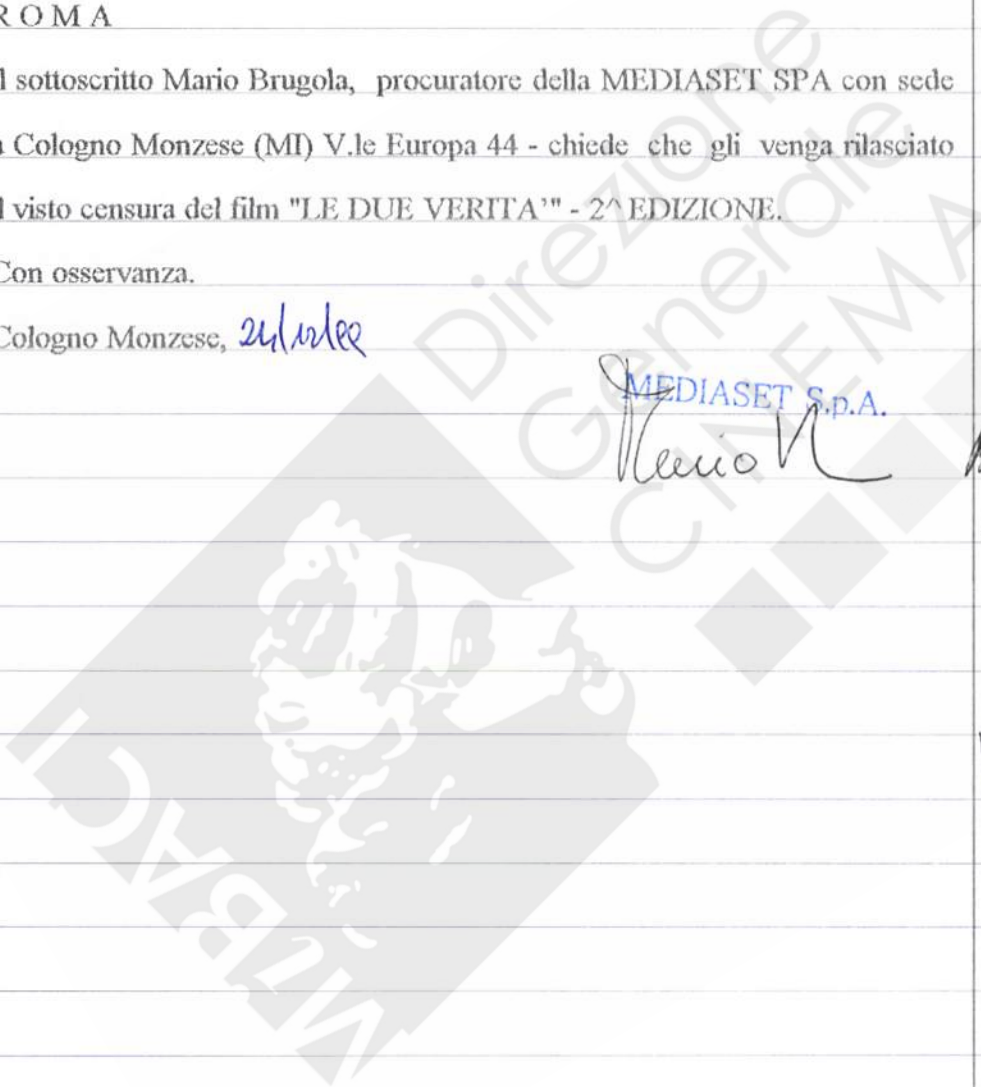 R O M A
l sottoscritto Mario Brugola, procuratore della MEDIASET SPA con sede
a Cologno Monzese (MI) V.le Europa 44 - chiede che gli venga rilasciato
l visto censura del film "LE DUE VERITA'" - 2^ EDIZIONE.
Con osservanza.
Cologno Monzese,
MEDIASET S.p.A.
Mario
Direzione
Generale
CINEMA
MiBACI